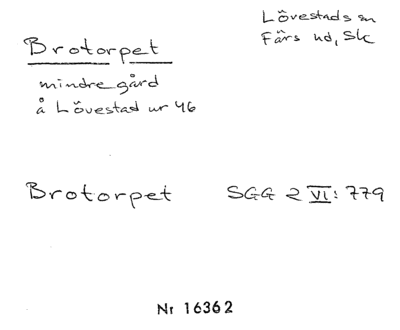 Lövestads sn
Färs hd, Sk
Brotorpet
mindre gård
å Lövestad nr 46
Brotorpet SGG 2 VI: 779
Nr 16362